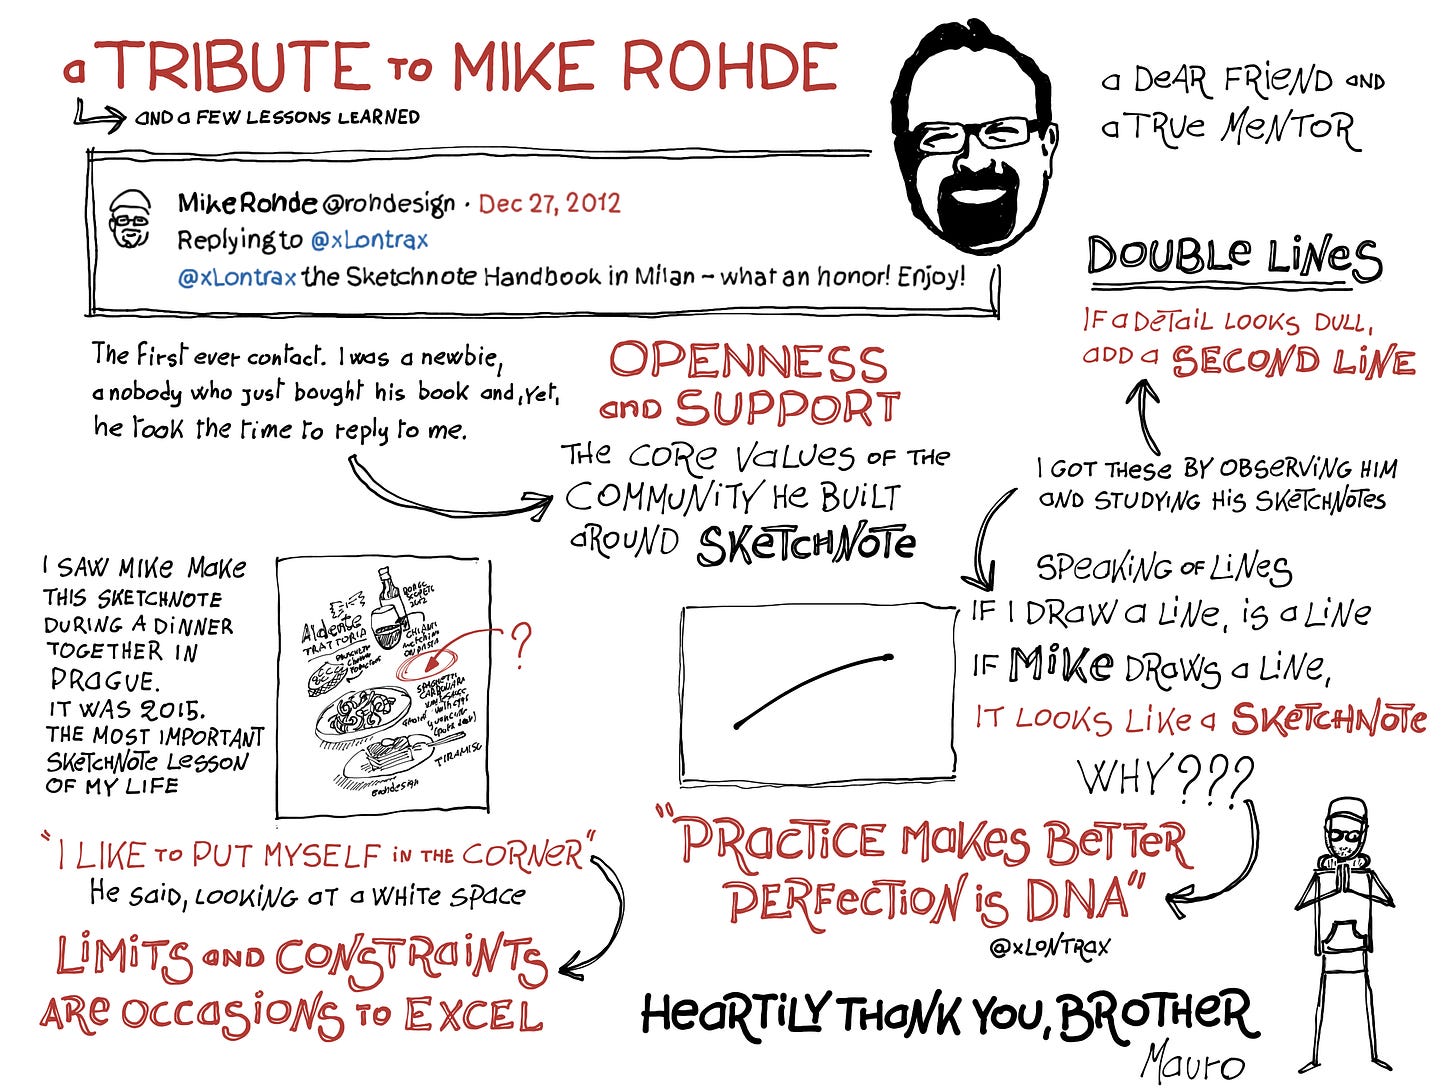 a TRIBUTE TO MIKE ROHDE
AND a FEW LESSONS LEARNED
a DEAR FRIEND AND
a TRUE MENTOR
Mike Rohde @rohdesign · Dec 27, 2012
Replying to @xLontrax
@xLontrax the Sketchnote Handbook in Milan – what an honor! Enjoy!
The first ever contact. I was a newbie,
a nobody who just bought his book and, yet,
he took the time to reply to me.
OPENNESS
and SUPPORT
THE CORE VALUES OF THE
COMMUNITY HE BUILT
AROUND SKETCHNOTE
DOUBLE LINES
IF a DETAIL LOOKS DULL,
ADD a SECOND LINE
I GOT THESE BY OBSERVING HIM
AND STUDYING HIS SKETCHNOTES
SPEAKING OF LINES
IF I DRAW a LINE, is a LINE
IF MIKE DRAWS a LINE,
IT LOOKS LIKE a SKETCHNOTE
WHY???
I SAW MIKE MAKE
THIS SKETCHNOTE
DURING A DINNER
TOGETHER IN
PRAGUE.
IT WAS 2015.
THE MOST IMPORTANT
SKETCHNOTE LESSON
OF MY LIFE
Aldente
TRATTORIA
CHIANTI
SPAGHETTI
CARBONARA
TIRAMISU
rohdesign
?
"I LIKE TO PUT MYSELF IN THE CORNER"
He SAID, LOOKING AT a WHITE SPACE
LIMITS AND CONSTRAINTS
ARE OCCASIONS TO EXCEL
"PRACTICE MAKES BETTER
PERFECTION is DNA"
@xLONTRAX
HEARTILY THANK YOU, BROTHER
Mauro